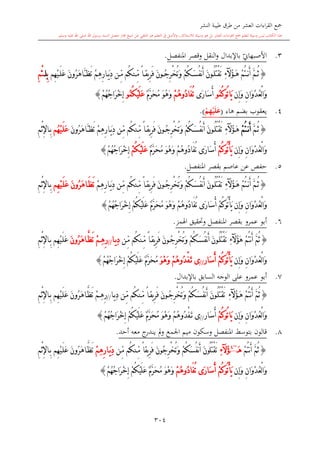 جمع القراءات العشر من طرق طيبة النشر
٣. الأصبهانيّ بالإبدال والنقل وقصر المنفصل.
﴿ ثُمَّ أَنتُمْ هَٰٓؤُلَآءِ تَقْتُلُونَ أَنفُسَكُمْ وَتُخْرِجُونَ فَرِيقًا مِّنكُم مِّن دِيَارِهِمْ تَظَّاهَرُونَ عَلَيْهِم بِالِاثْمِ
وَالْعُدْوَانِ وَإِن يَاتُوكُمُۥٓ أُسَارَىٰ تُفَادُوهُمْ وَهُوَ مُحَرَّمٌ عَلَيْكُمُۥٓ إِخْرَاجُهُمْ ﴾
٤. يعقوب بضم هاء (عَلَيْهُمْ).
﴿ ثُمَّ أَنتُمْ هَٰٓؤُلَآءِ تَقْتُلُونَ أَنفُسَكُمْ وَتُخْرِجُونَ فَرِيقًا مِّنكُم مِّن دِيَارِهِمْ تَظَّاهَرُونَ عَلَيْهُم بِالْإِثْمِ
وَالْعُدْوَانِ وَإِن يَأْتُوكُمْ أُسَارَىٰ تُفَادُوهُمْ وَهُوَ مُحَرَّمٌ عَلَيْكُمْ إِخْرَاجُهُمْ ﴾
٥. حفص عن عاصم بقصر المنفصل.
﴿ ثُمَّ أَنتُمْ هَٰٓؤُلَآءِ تَقْتُلُونَ أَنفُسَكُمْ وَتُخْرِجُونَ فَرِيقًا مِّنكُم مِّن دِيَارِهِمْ تَظَاهَرُونَ عَلَيْهِم بِالْإِثْمِ
وَالْعُدْوَانِ وَإِن يَأْتُوكُمْ أُسَارَىٰ تُفَادُوهُمْ وَهُوَ مُحَرَّمٌ عَلَيْكُمْ إِخْرَاجُهُمْ ﴾
٦. أبو عمرو بقصر المنفصل وتحقيق الهمز.
﴿ ثُمَّ أَنتُمْ هَٰٓؤُلَآءِ تَقْتُلُونَ أَنفُسَكُمْ وَتُخْرِجُونَ فَرِيقًا مِّنكُم مِّن دِيَارِهِمْ تَظَّاهَرُونَ عَلَيْهِم بِالْإِثْمِ
وَالْعُدْوَانِ وَإِن يَأْتُوكُمْ أُسَارَىٰ تَفْدُوهُمْ وَهْوَ مُحَرَّمٌ عَلَيْكُمْ إِخْرَاجُهُمْ ﴾
٧. أبو عمرو على الوجه السابق بالإبدال.
﴿ ثُمَّ أَنتُمْ هَٰٓؤُلَآءِ تَقْتُلُونَ أَنفُسَكُمْ وَتُخْرِجُونَ فَرِيقًا مِّنكُم مِّن دِيَارِهِمْ تَظَّاهَرُونَ عَلَيْهِم بِالْإِثْمِ
وَالْعُدْوَانِ وَإِن يَاتُوكُمْ أُسَارَىٰ تَفْدُوهُمْ وَهْوَ مُحَرَّمٌ عَلَيْكُمْ إِخْرَاجُهُمْ ﴾
٨. قالون بتوسط المنفصل وسكون ميم الجمع ولم يندرج معه أحد.
﴿ ثُمَّ أَنتُمْ هَٰٓؤُلَآءِ تَقْتُلُونَ أَنفُسَكُمْ وَتُخْرِجُونَ فَرِيقًا مِّنكُم مِّن دِيَارِهِمْ تَظَّاهَرُونَ عَلَيْهِم بِالْإِثْمِ
وَالْعُدْوَانِ وَإِن يَأْتُوكُمْ أُسَارَىٰ تُفَادُوهُمْ وَهْوَ مُحَرَّمٌ عَلَيْكُمْ إِخْرَاجُهُمْ ﴾
٣٠٤